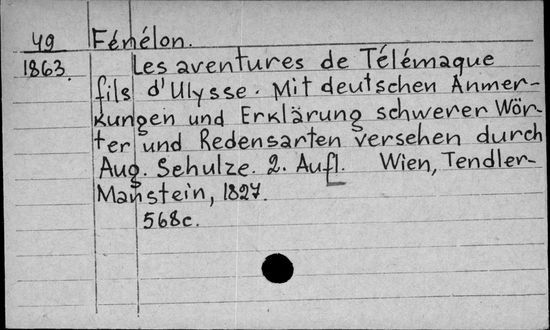 49 Fénélon.
1863. Les aventures de Télémaque
fils d'Ulysse. Mit deutschen Anmer-
kungen und Erklärung schwerer Wör-
ter und Redensarten versehen durch
Aug. Schulze. 2. Aufl. Wien, Tendler-
Manstein, 1827.
568c.